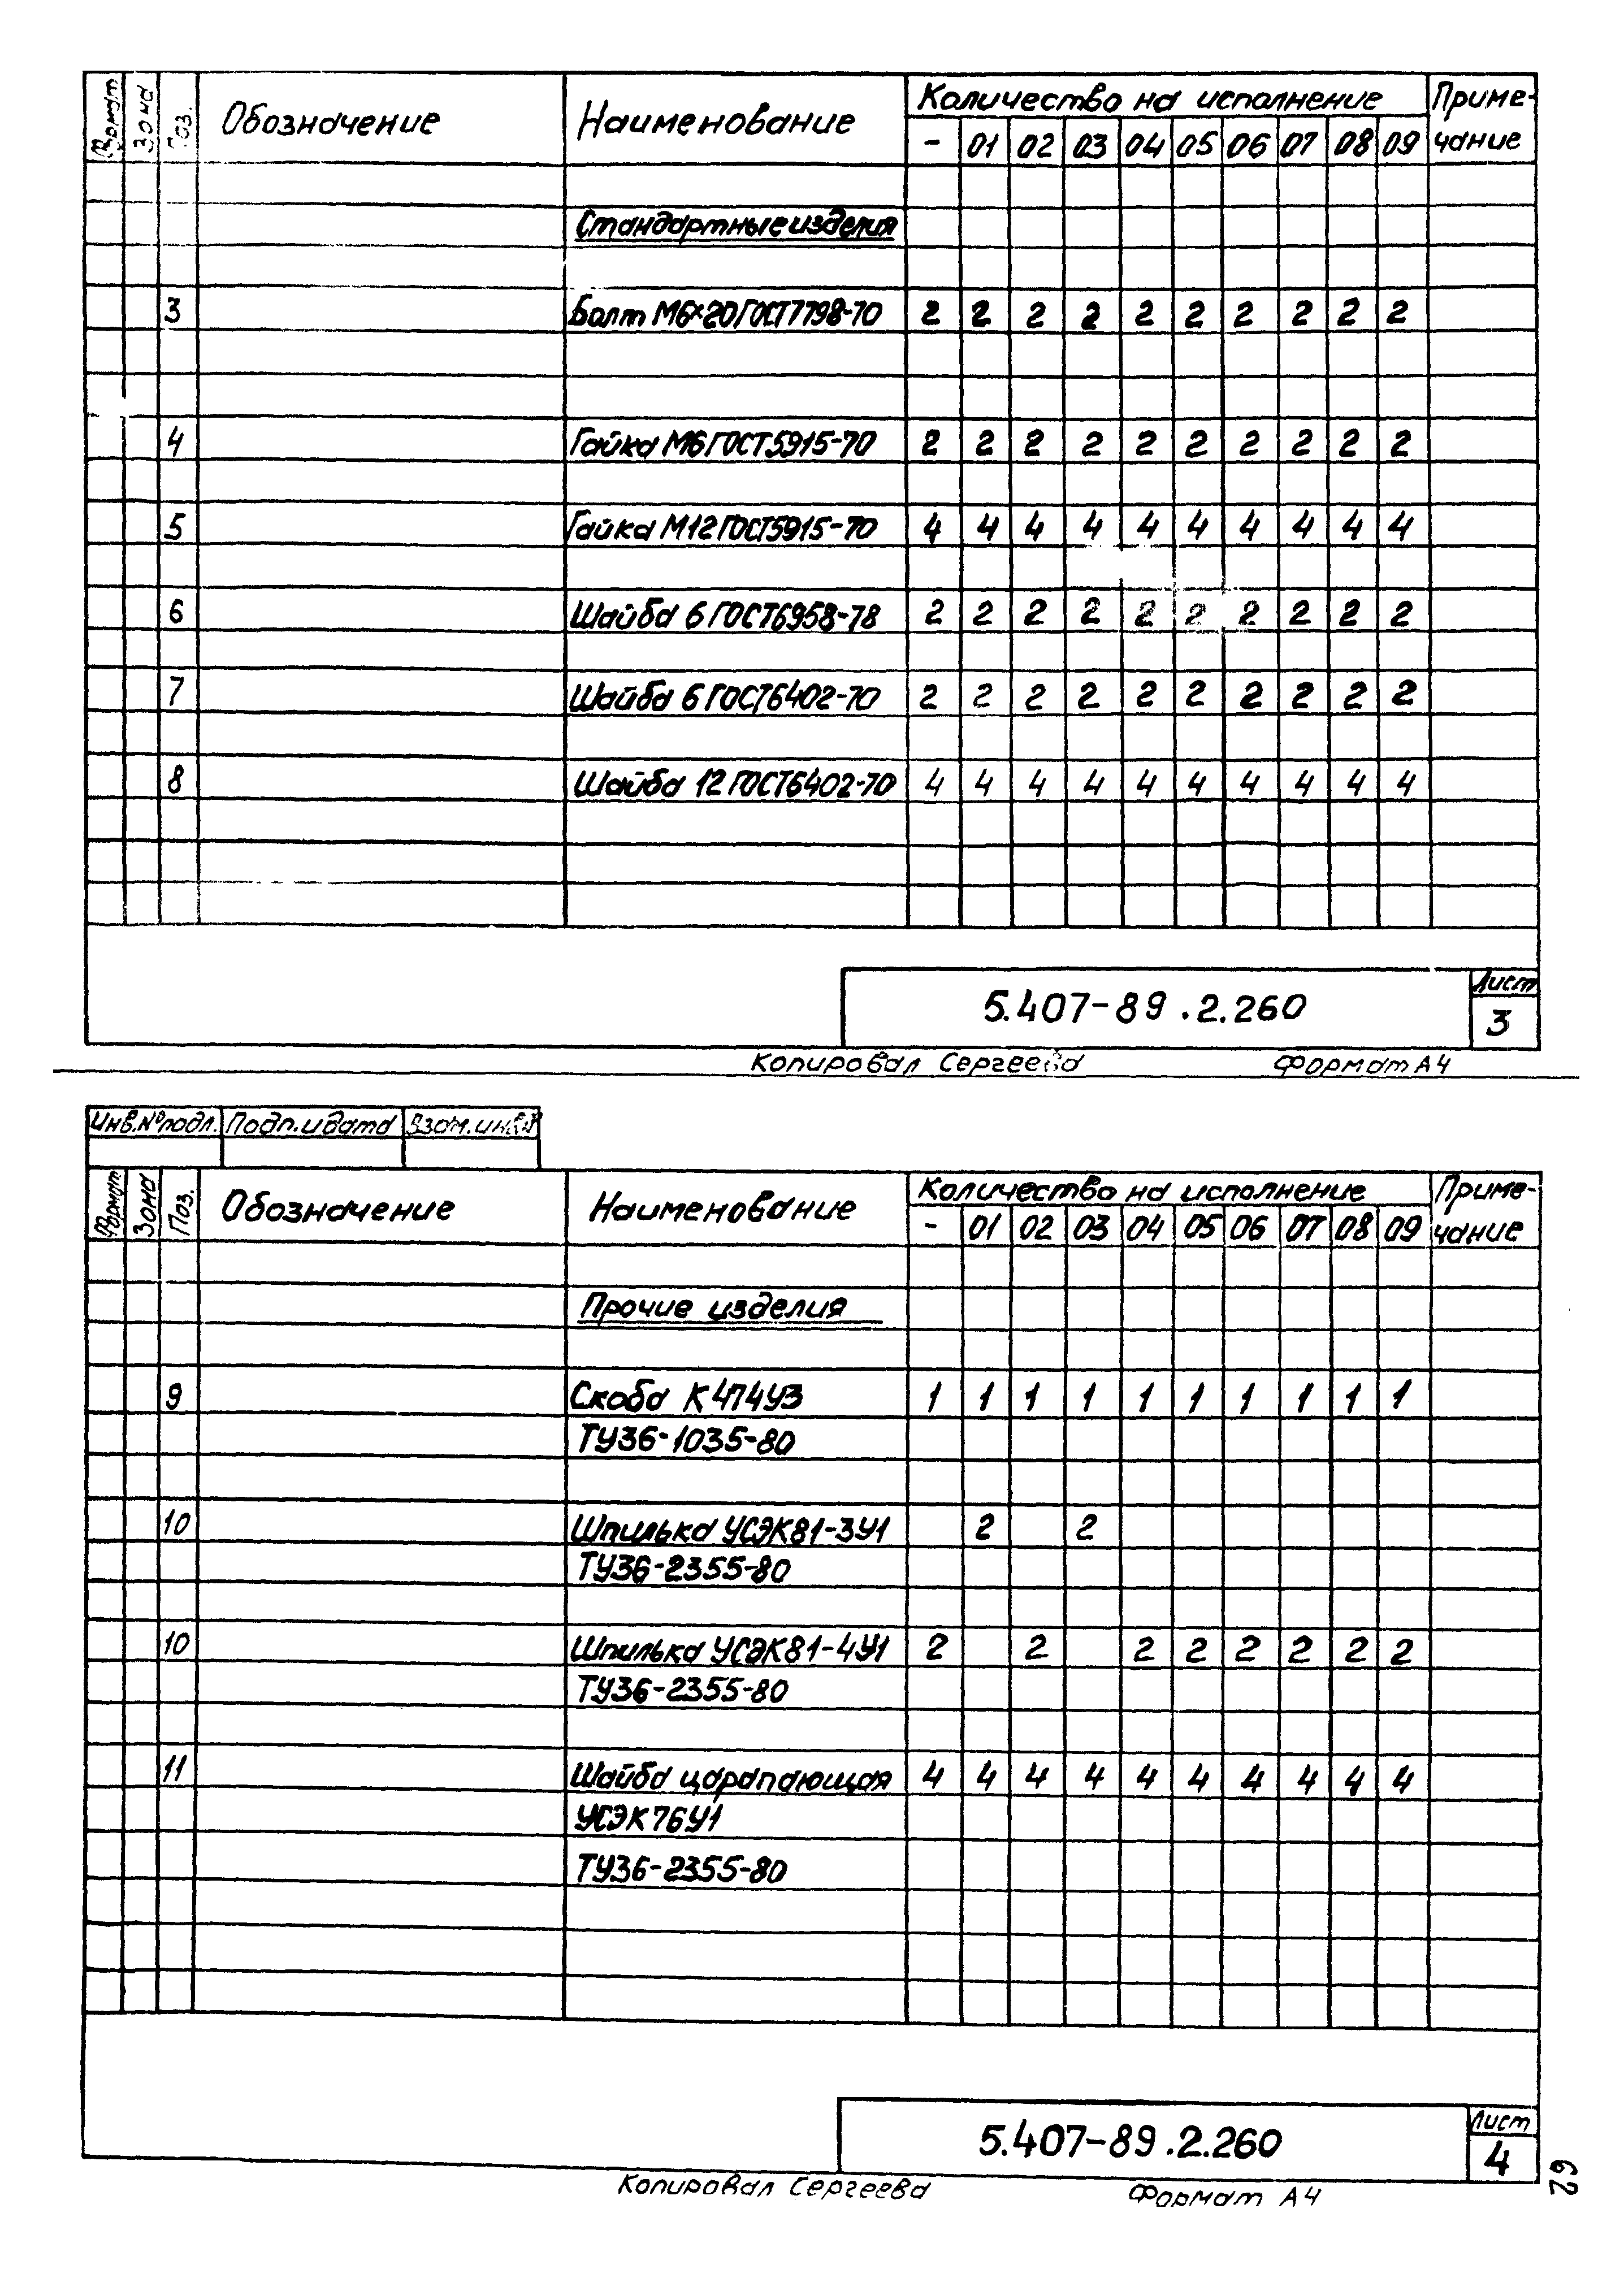 Формат Зона Поз. Обозначение Наименование Количество на исполнение Приме-
- 01 02 03 04 05 06 07 08 09 чание
Стандартные изделия
3 Болт М6×20 ГОСТ 7798-70 2 2 2 2 2 2 2 2 2 2
4 Гайка М6 ГОСТ 5915-70 2 2 2 2 2 2 2 2 2 2
5 Гайка М12 ГОСТ 5915-70 4 4 4 4 4 4 4 4 4 4
6 Шайба 6 ГОСТ 6958-78 2 2 2 2 2 2 2 2 2 2
7 Шайба 6 ГОСТ 6402-70 2 2 2 2 2 2 2 2 2 2
8 Шайба 12 ГОСТ 6402-70 4 4 4 4 4 4 4 4 4 4
5.407-89.2.260 Лист
3
Копировал Сергеева Формат А4
Инв.№ подл. Подп. и дата Взам. инв.№
Формат Зона Поз. Обозначение Наименование Количество на исполнение Приме-
- 01 02 03 04 05 06 07 08 09 чание
Прочие изделия
9 Скоба К474У3 1 1 1 1 1 1 1 1 1 1
ТУ36-1035-80
10 Шпилька УСЭК81-3У1 2 2
ТУ36-2355-80
10 Шпилька УСЭК81-4У1 2 2 2 2 2 2 2 2
ТУ36-2355-80
11 Шайба царапающая 4 4 4 4 4 4 4 4 4 4
УСЭК76У1
ТУ36-2355-80
5.407-89.2.260 Лист
4
Копировал Сергеева Формат А4
62